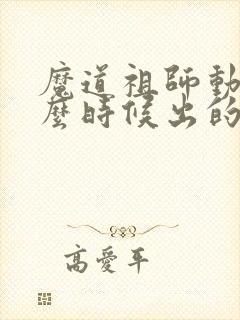 魔道祖師動
麼時候出的
高愛平